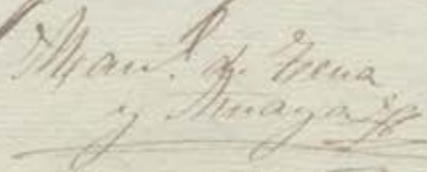 Man.l de Tena
y Amaya